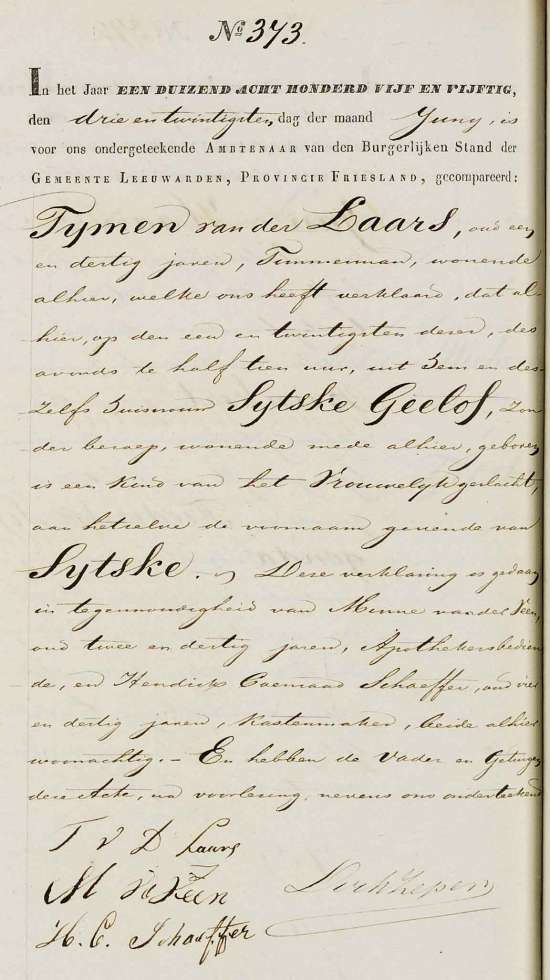 No. 373.
In het Jaar EEN DUIZEND ACHT HONDERD VIJF EN VIJFTIG,
den drie en twintigsten dag der maand Juny, is
voor ons ondergeteekende AMBTENAAR van den Burgerlijken Stand der
GEMEENTE LEEUWARDEN, PROVINCIE FRIESLAND, gecompareerd:
Tymen van der Laars, oud een
en dertig jaren, Timmerman, wonende
alhier, welke ons heeft verklaard, dat al-
hier, op den een en twintigsten dezer, des
avonds te half tien uur, uit hem en des-
zelfs huisvrouw Sytske Geelof, zon
der beroep, wonende mede alhier, geboren
is een kind van het Vrouwelyk geslacht,
aan hetzelve de voornaam gevende van
Sytske. – Deze verklaring is gedaan
in tegenwoordigheid van Minne van der Veen,
oud twee en dertig jaren, Apothekersbedien
de, en Hendrik Coenraad Schaeffer, oud vier
en dertig jaren, Kastenmaker, beide alhier
woonachtig. – En hebben de Vader en Getuigen
deze Acte, na voorlezing, nevens ons onderteekend
T v D Laars
M vd Veen
H. C. Schaeffer